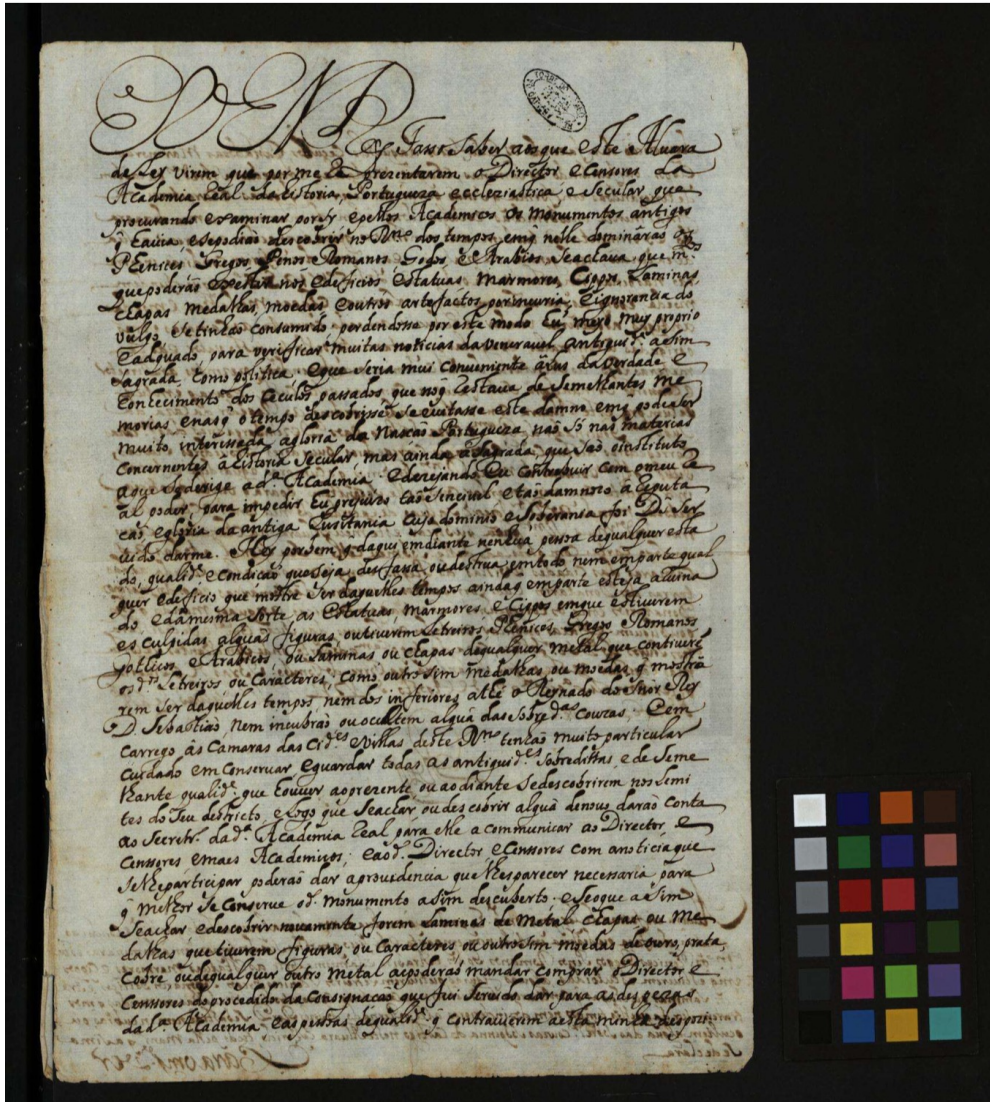 Faço Saber aos que este Alvará
de Ley virem que por me representarem o Director e Censores da
Academia Real da historia Portugueza ecclesiastica e Secular que
procurando examinar por sy e pellos Academicos os monumentos antigos
q havia, e se podião descobrir no Rno dos tempos em q nelle dominarão os
Phenices Gregos Penos Romanos Godos e Arabios se achava que m.tos
que poderão existir nos edeficios Estatuas marmores, Cippos, Laminas,
chapas medalhas, moedas e outros artefactos por incuria, e ignorancia do
vulgo se tinhão consumido, perdendosse por este modo hu meyo muy proprio
e adquado, para verificar muitas noticias da veneravel antiguid.e asim
sagrada, como politica; e que seria mui conveniente á lus da verdade e
conhecimento dos seculos passados, que no q restava de Semelhantes me
morias e nas q o tempo descobrisse se evitasse este damno em q podia ser
muito interessada a gloria da Nasção Portugueza não só nas materias
concernentes á historia Secular, mas ainda á Sagrada, que são o instituto
a que se derige a d.a Academia e dezejando Eu contribuir com o meu Re
al poder, para impedir hu prejuizo tão sencivel e tão damnozo á reputa
ção e gloria da antiga Lusitania cujo dominio e Soberania foi D.s Ser
vido darme. Hey por bem q daqui em diante nenhua pessoa de qualquer esta
do, qualid.e e condição que seja, desfassa ou destrua em todo nem em parte qual
quer edeficio que mostre ser daquelles tempos ainda q em parte esteja arruina
do e da mesma sorte as Estatuas marmores e Cippos em que estiverem
esculpidas alguas figuras, ou tiverem Letreiros Phenices, Gregos Romanos
Gothicos e Arabicos, ou Laminas ou chapas de qualquer metal que contiverẽ
os d.os Letreiros ou Caracteres, como outro sim medalhas ou moedas q mostra
rem ser daquelles tempos, nem dos inferiores athé o Reynado do Snor Rey
D. Sebastião, nem incubrão ou ocultem algua das sobred.as couzas; e em
carrego, ás Camaras das Cid.es e Villas deste Rno tenhão muito particular
cuidado em conservar e guardar todas as antiguid.es sobredittas, e de seme
lhante qualid.e que houver ao prezente ou ao diante se descobrirem nos limi
tes do Seu destricto, e logo que se achar, ou descobrir algua de novo darão conta
ao Secretr. da d.a Academia Real para elle a communicar ao Director e
Censsores e maes Academicos; e ao d. Director, e Censsores com a noticia que
se lhe participar poderão dar a providencia que lhes parecer necessaria para
q melhor se conserve o d. monumento asim descuberto, e se o que asim
se achar e descobrir novamente forem Laminas de Metal chapas ou me
dalhas que tiverem figuras, ou Caracteres ou outro sim moedas de ouro, prata,
cobre ou de qualquer outro metal as poderão mandar comprar o Director e
Censsores do procedido da consignação que fui servido dar para as despezas
da d.a Academia e as pessoas de qualid.e q contravierem a esta minha dispozi: